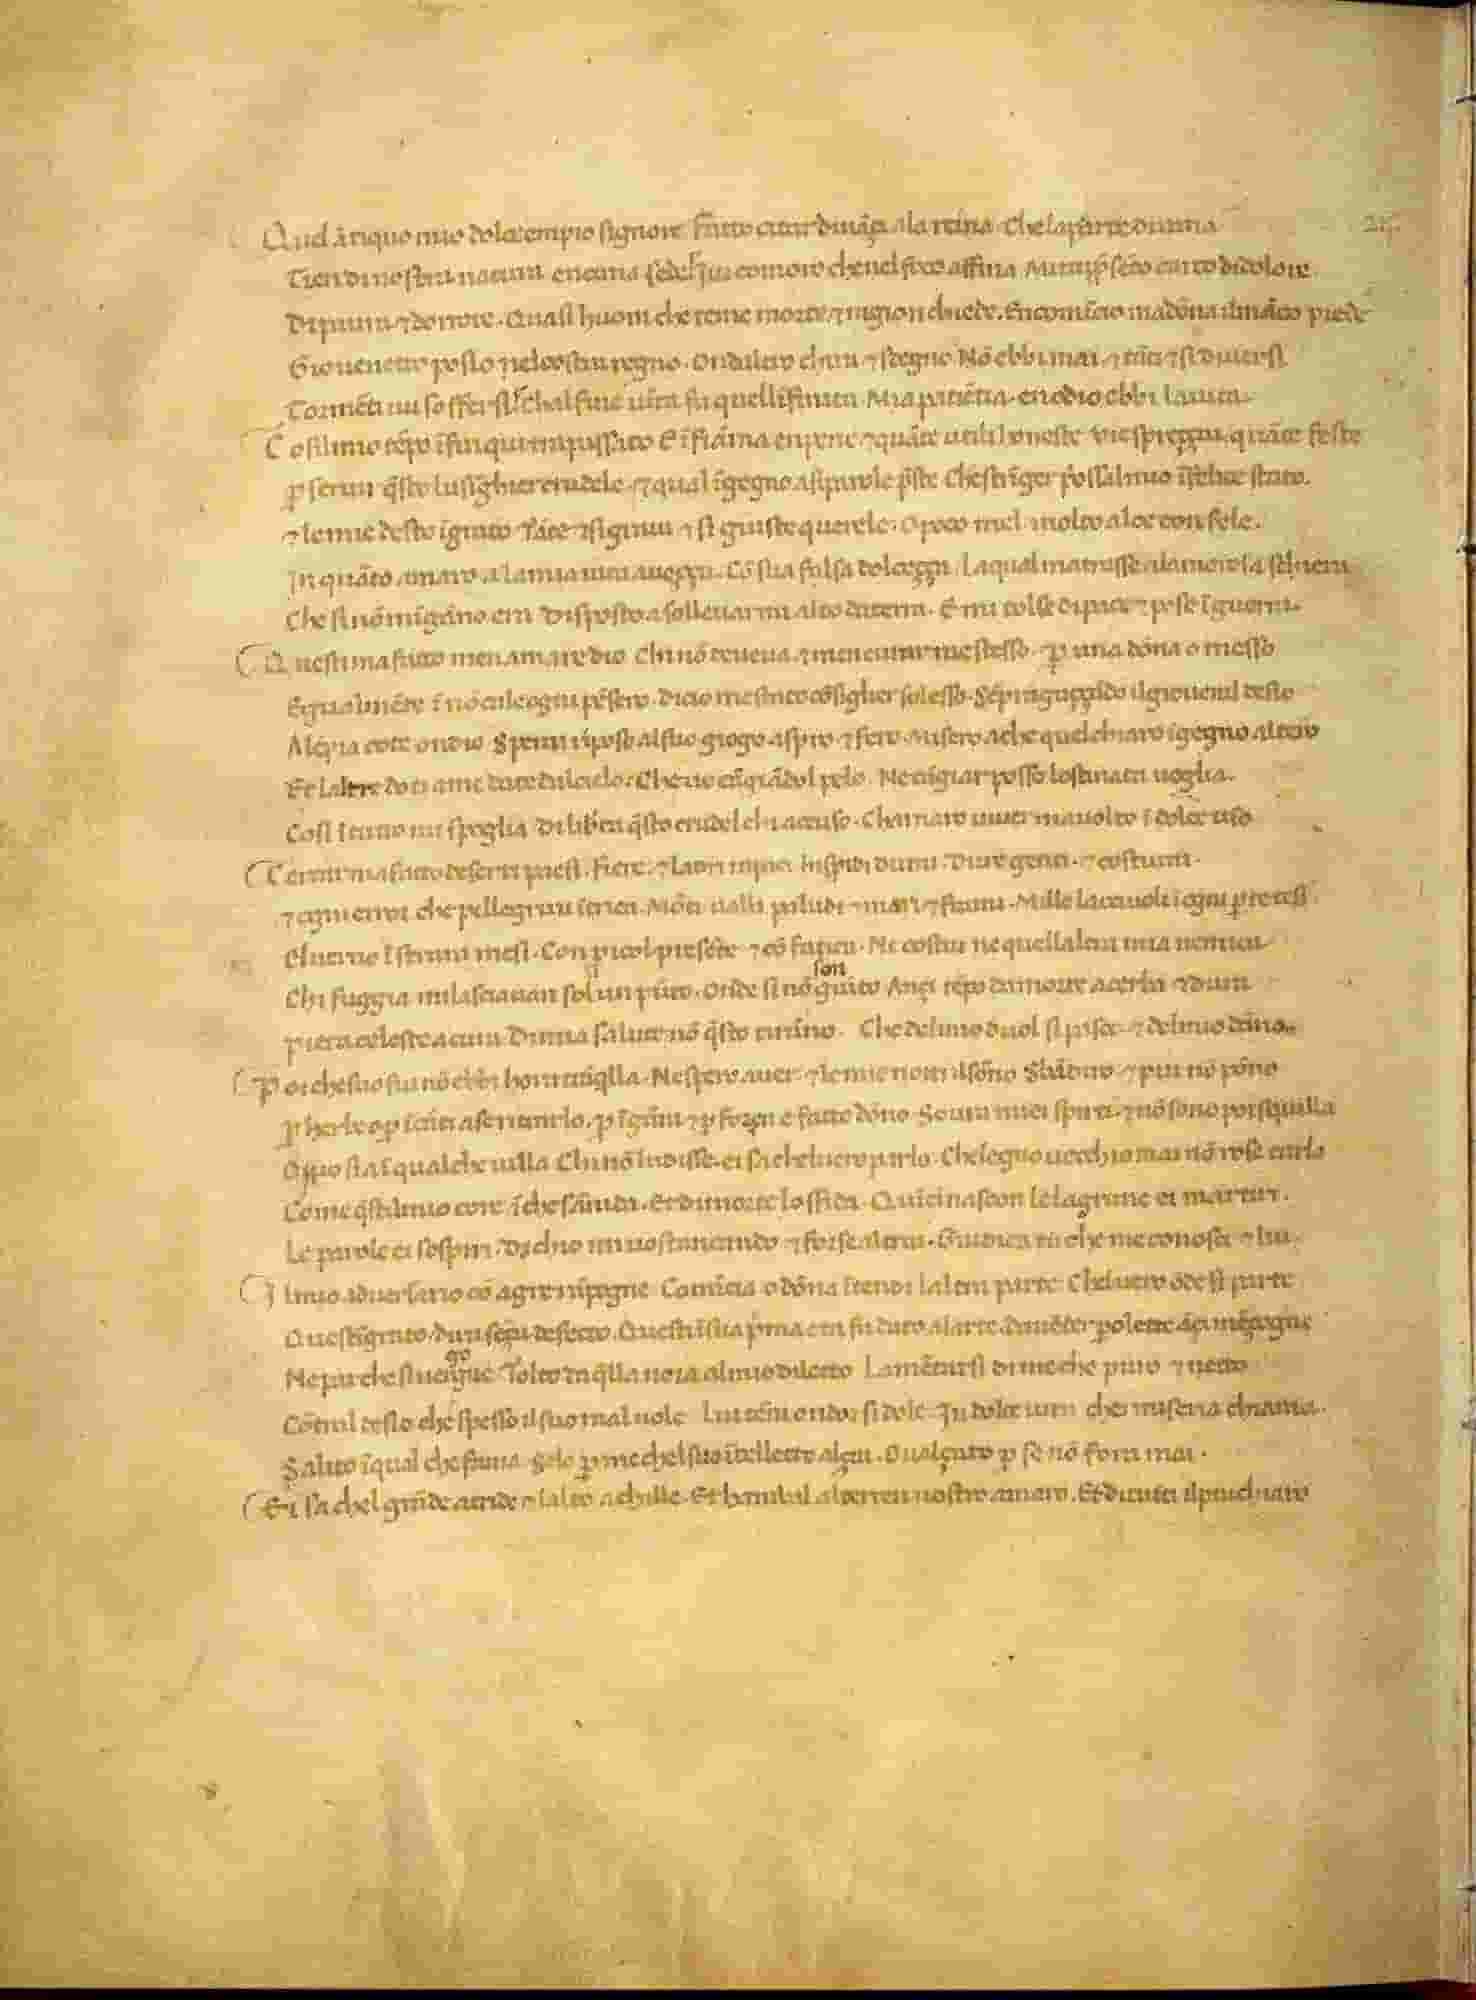 Quel ātiquo mio dolce empio signore Fatto citar dināçi ala reina Che la parte diuina
Tien di nostra natura encima sede Iui comoro che nel foco affina Mi rap̄sēto carco di dolore
Di paura ⁊ dorrore. Quasi huom che teme morte ⁊ ragion chiede. Encomīcio madōna il māco piede
Giouenetto posio nel costui regno. Ondaltro chira ⁊ sdegno Nō ebbi mai ⁊ tāti ⁊ si diuersi
Tormēti iui soffersi Chalfine uīta fu quellīfinita Mia patiētia. enodio ebbi la uita.
Cosi l mio tēpo īfin qui trapassato E ī fiāma enpene ⁊ quāte utili honeste Vie spreççai, quāte feste
ꝑ seruir q̄sto lusīghier crudele. ⁊ qual īgegno a si parole p̄ste Che strīger possa l mio īfelice stato.
⁊ le mie desto īgrato Tāte ⁊ si graui ⁊ si giuste querele. O poco mel molto aloe con fele.
In quāto amaro a la mia uita aueçça. Cō sua falsa dolceçça La qual mattrasse alamorosa schiera
Che si nō mīgāno era Disposto a solleuarmi alto da terra. E mi tolse di pace ⁊ pose ī guerra.
Questi ma fatto men amare dio Chi nō deueua ⁊ men curar me stesso. ꝑ una dōna o messo
Egualmēte ī nō cale ogni pēsero. Di cio me stato cōsiglier sol esso. Sēpr aguççādo il giouenil desio
A lēpia cote ondio Sperai riposo al suo giogo aspro ⁊ fero Misero a che quel chiaro īgegno altero
Et laltre doti a me date dal cielo. Che uo cāgiādol pelo. Ne cāgiar posso lostinata uoglia.
Cosi ī tutto mi spoglia Di libertà q̄sto crudel chi accuso. Chamaro uiuer ma uolto ī dolce uso
Cercar ma fatto deserti paesi. Fiere ⁊ ladri rapaci hispidi dumi. Dure genti ⁊ costumi.
⁊ ogni error che pellegrini ītrica. Mōti ualli paludi ⁊ mari ⁊ fiumi. Mille lacciuoli ī ogni parte tesi.
El uerno ī strani mesi. Con pericol presēte ⁊ cō fatica. Ne costui ne quellaltra mia nemica
Chi fuggia mi lasciauan sol un pūto. Onde si nō son giūto Ançi tēpo da morte acerba ⁊ dura
pieta celeste a cura Di mia salute nō q̄sto tirāno. Che del mio duol si pasce ⁊ del mio dāno.
Poi che suo fui nō ebbi hora trāq̄lla. Ne spero auer. ⁊ le mie notti il sōno Sbādiro ⁊ piu nō pōno
ꝑ herbe o ꝑ īcāti a se ritrarlo. ꝑ īgāni ⁊ ꝑ força e fatto dōno Soura miei spirti. ⁊ nō sono poi squilla
Ouio sia ī qualche uilla Chi nō ludisse. ei sa chel uero parlo. Che legno uecchio mai nō rose tarlo
Come q̄stil mio core ī che sānida. Et di morte lo sfida. Quīci nascon le lagrime ei martiri.
Le parole ei sospiri. Di chio mi uo stancando ⁊ forse altrui. Giudica tu che me conosci ⁊ lui.
Il mio aduersario cō agre rāpogne Comīcia o dōna ītendi laltra parte Chel uero ōde si parte
Questīgrato, dira sēça defecto. Questi ī sua prima eta fu dato alarte. Da uēder parolette ançi mēçogne
Ne par che si uergogne Tolto da q̄lla noia al mio diletto Lamētarsi di me che puro ⁊ netto
Cōtral desio che spesso il suo mal uole Lui tēni ondor si dole. In dolce uita che miseria chiama.
Salito ī qualche fama Solo ꝑ me chel suo ītellecto alçai. Oualçato ꝑ se nō fora mai.
Ei sa chel grāde atride ⁊ lalto achille. Et hanibal al terren uostro amaro. Et di tutti il piu chiaro